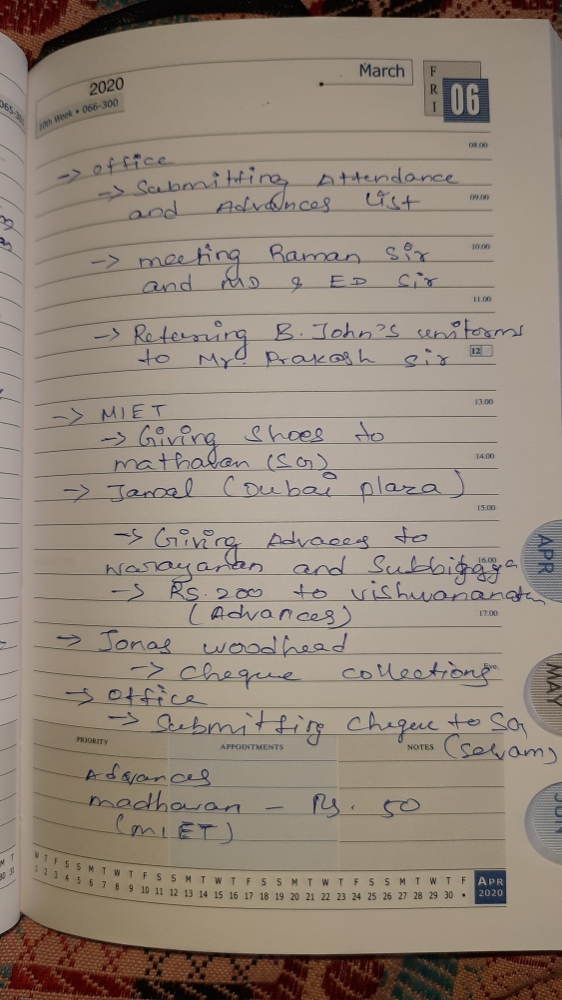 2020
March
FRI
06
10th Week • 066-300
08.00
-> office
-> Submitting Attendance
09.00
and Advances List
10.00
-> meeting Raman Sir
and MD & ED Sir
11.00
-> Returning B. John's uniforms
12
to Mr. Prakash Sir
13.00
-> MIET
-> Giving Shoes to
14.00
mathavan (SG)
-> Jamal (Dubai plaza)
15.00
-> Giving Advaces to
16.00
Narayanan and
-> Rs. 200 to
17.00
(Advances)
-> Jonas woodhead
-> cheque collections
Eve.
-> office
-> Submitting cheque to SG
(Selvam)
PRIORITY
APPOINTMENTS
NOTES
Advances
madhavan - Rs. 50
(MIET)
W T F S S M T W T F S S M T W T F S S M T W T F S S M T W T F
1 2 3 4 5 6 7 8 9 10 11 12 13 14 15 16 17 18 19 20 21 22 23 24 25 26 27 28 29 30 •
APR
2020
APR
MAY
JUN